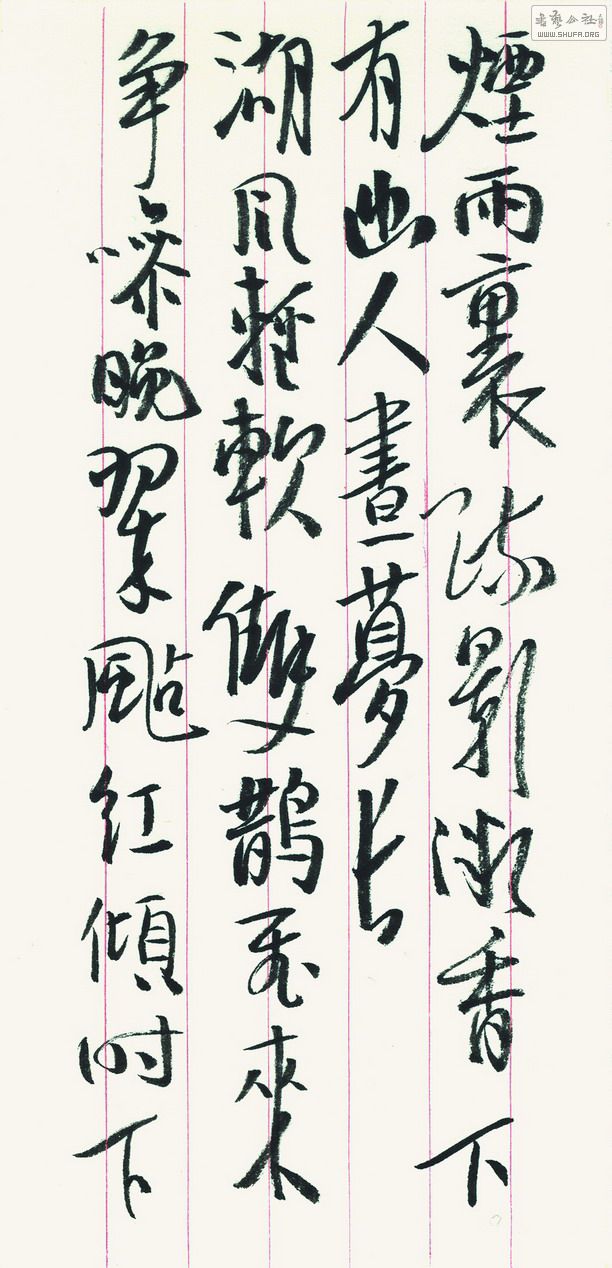 煙雨裏疏影微香下
有幽人晝夢長
湖风輕軟雙鵲飛來
争噪晚翠颭紅傾时下
書藝公社
WWW.SHUFA.ORG